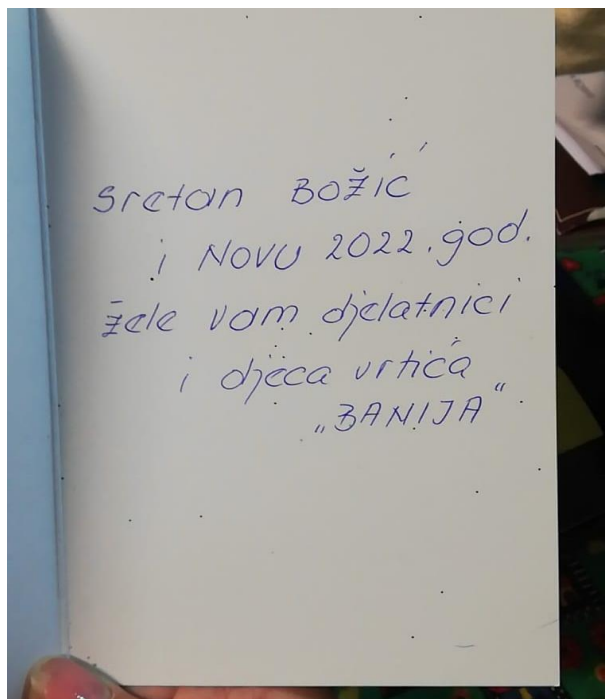 Sretan BOŽIĆ
i NOVU 2022. god.
žele vam djelatnici
i djeca vrtića
„BANIJA“.